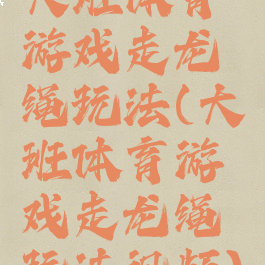 大班体育
游戏走龙
绳玩法(大
班体育游
戏走龙绳
玩法视频)